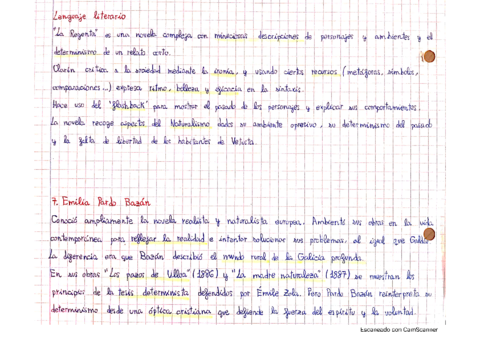 Lenguaje literario
"La Regenta" es una novela compleja con minuciosas descripciones de personajes y ambientes y el
determinismo de un relato corto.
Clarín critica a la sociedad mediante la ironía, y usando ciertos recursos (metáforas, símbolos,
comparaciones...) expresa ritmo, belleza y eficacia en la sintaxis.
Hace uso del "flashback" para mostrar el pasado de los personajes y explicar sus comportamientos.
La novela recoge aspectos del Naturalismo dados su ambiente opresivo, su determinismo del pasado
y la falta de libertad de los habitantes de Vetusta.
7. Emilia Pardo Bazán
Conoció ampliamente la novela realista y naturalista europea. Ambientó sus obras en la vida
contemporánea para reflejar la realidad e intentar solucionar sus problemas, al igual que
La diferencia era que Bazán describió el mundo rural de la Galicia profunda.
En sus obras "Los pazos de Ulloa" (1886) y "La madre naturaleza" (1887) se muestran los
principios de la tesis determinista defendidos por Émile Zola. Pero Pardo Bazán reinterpreta su
determinismo desde una óptica cristiana que defiende la fuerza del espíritu y la voluntad.
Escaneado con CamScanner